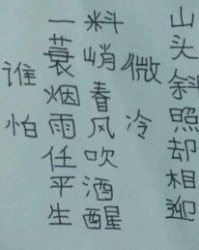 谁怕
一蓑烟雨任平生
料峭春风吹酒醒
微冷
山头斜照却相迎